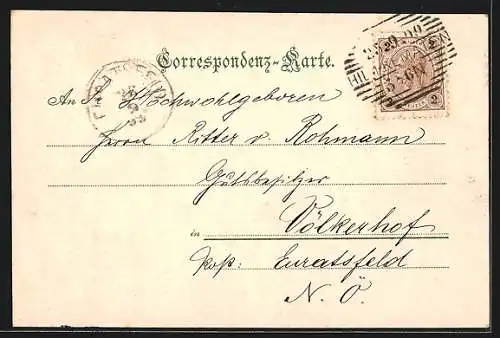 Correspondenz-Karte.
An Sr. Hochwohlgeboren
Herrn Ritter v. Rohmann
Gutsbesitzer
in Völkerhof
Post: Euratsfeld
N. Ö.
2